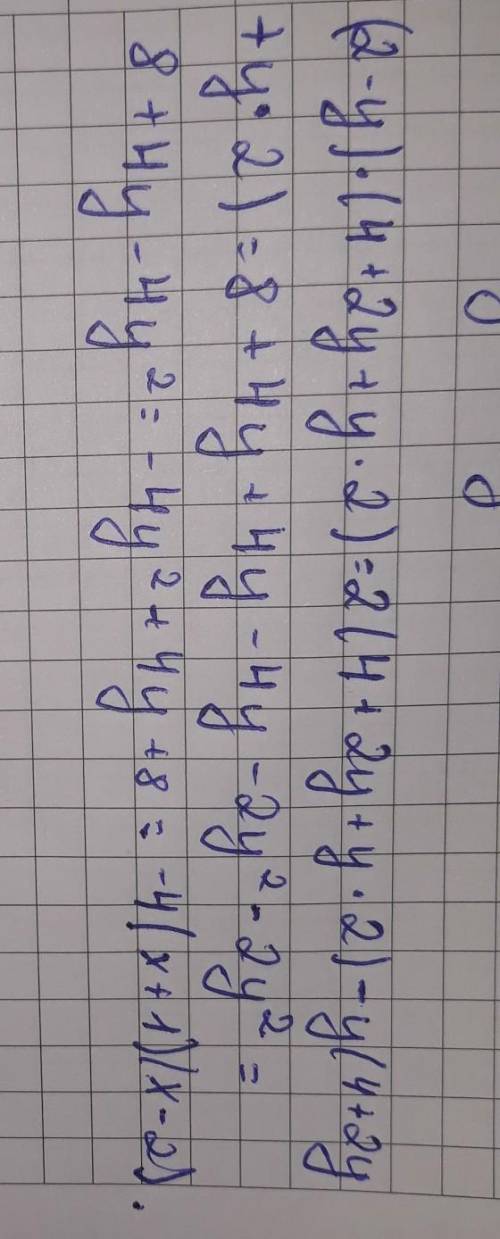 (2-y)·(4+2y+y·2)=2(4+2y+y·2)-y(4+2y
+y·2)=8+4y+4y-4y-2y²-2y²=
8+4y-4y²=-4y²+4y+8=-4(x+1)(x-2).